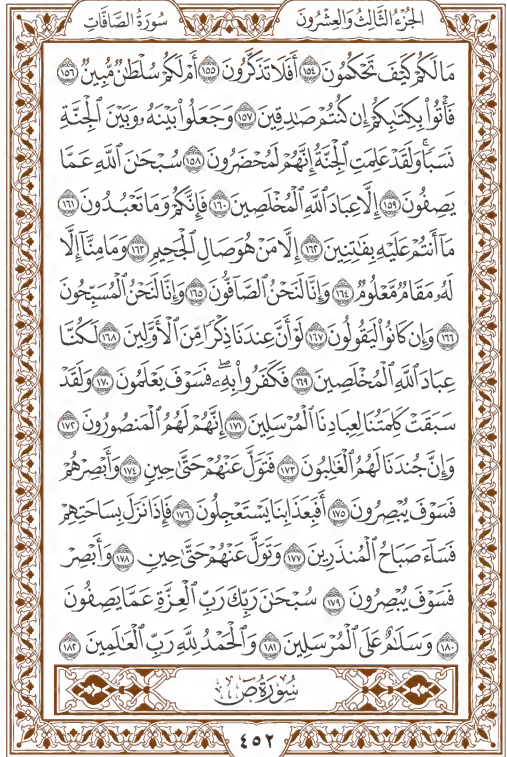 الجُزْءُ الثَّالِثُ وَالعِشْرُونَ سُورَةُ الصَّافَّاتِ
مَا لَكُمْ كَيْفَ تَحْكُمُونَ ١٥٤ أَفَلَا تَذَكَّرُونَ ١٥٥ أَمْ لَكُمْ سُلْطَٰنٌ مُّبِينٌ ١٥٦
فَأْتُوا۟ بِكِتَٰبِكُمْ إِن كُنتُمْ صَٰدِقِينَ ١٥٧ وَجَعَلُوا۟ بَيْنَهُۥ وَبَيْنَ ٱلْجِنَّةِ
نَسَبًا ۚ وَلَقَدْ عَلِمَتِ ٱلْجِنَّةُ إِنَّهُمْ لَمُحْضَرُونَ ١٥٨ سُبْحَٰنَ ٱللَّهِ عَمَّا
يَصِفُونَ ١٥٩ إِلَّا عِبَادَ ٱللَّهِ ٱلْمُخْلَصِينَ ١٦٠ فَإِنَّكُمْ وَمَا تَعْبُدُونَ ١٦١
مَآ أَنتُمْ عَلَيْهِ بِفَٰتِنِينَ ١٦٢ إِلَّا مَنْ هُوَ صَالِ ٱلْجَحِيمِ ١٦٣ وَمَا مِنَّآ إِلَّا
لَهُۥ مَقَامٌ مَّعْلُومٌ ١٦٤ وَإِنَّا لَنَحْنُ ٱلصَّآفُّونَ ١٦٥ وَإِنَّا لَنَحْنُ ٱلْمُسَبِّحُونَ
١٦٦ وَإِن كَانُوا۟ لَيَقُولُونَ ١٦٧ لَوْ أَنَّ عِندَنَا ذِكْرًا مِّنَ ٱلْأَوَّلِينَ ١٦٨ لَكُنَّا
عِبَادَ ٱللَّهِ ٱلْمُخْلَصِينَ ١٦٩ فَكَفَرُوا۟ بِهِۦ ۖ فَسَوْفَ يَعْلَمُونَ ١٧٠ وَلَقَدْ
سَبَقَتْ كَلِمَتُنَا لِعِبَادِنَا ٱلْمُرْسَلِينَ ١٧١ إِنَّهُمْ لَهُمُ ٱلْمَنصُورُونَ ١٧٢
وَإِنَّ جُندَنَا لَهُمُ ٱلْغَٰلِبُونَ ١٧٣ فَتَوَلَّ عَنْهُمْ حَتَّىٰ حِينٍ ١٧٤ وَأَبْصِرْهُمْ
فَسَوْفَ يُبْصِرُونَ ١٧٥ أَفَبِعَذَابِنَا يَسْتَعْجِلُونَ ١٧٦ فَإِذَا نَزَلَ بِسَاحَتِهِمْ
فَسَآءَ صَبَاحُ ٱلْمُنذَرِينَ ١٧٧ وَتَوَلَّ عَنْهُمْ حَتَّىٰ حِينٍ ١٧٨ وَأَبْصِرْ
فَسَوْفَ يُبْصِرُونَ ١٧٩ سُبْحَٰنَ رَبِّكَ رَبِّ ٱلْعِزَّةِ عَمَّا يَصِفُونَ
١٨٠ وَسَلَٰمٌ عَلَى ٱلْمُرْسَلِينَ ١٨١ وَٱلْحَمْدُ لِلَّهِ رَبِّ ٱلْعَٰلَمِينَ ١٨٢
سُورَةُ ص
٤٥٢